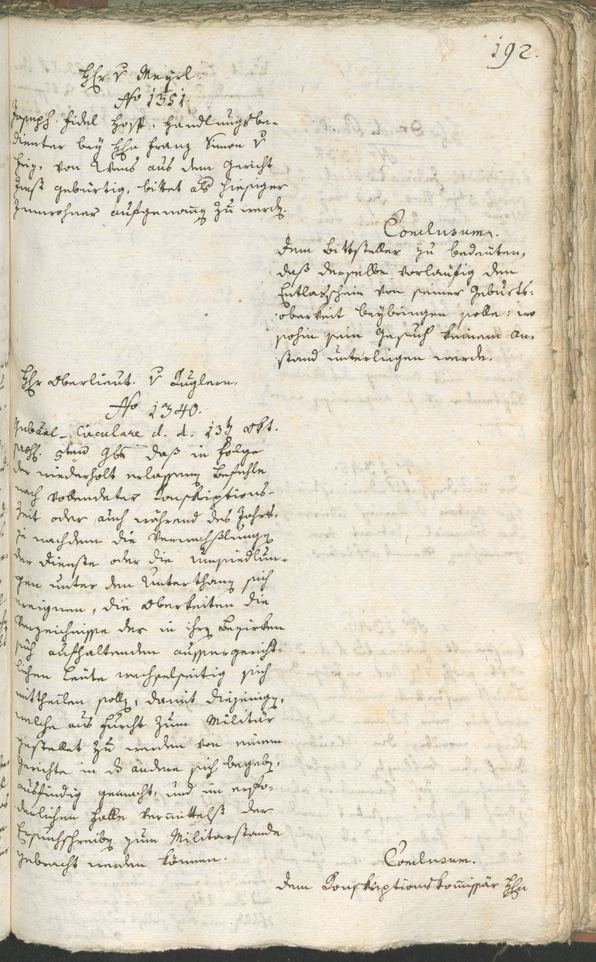 192.
Hr. v Meyrl.
No 1351.
Joseph Fidel Hopp, Handlungsbe-
dienter bey Hrn Franz Simon v
von Vens aus dem Gericht
gebürtig, bittet als hiesiger
Innwohner aufgenomm zu werdn
Conclusum.
Dem Bittsteller zu bedeuten,
daß derselbe vorläufig den
Entlaßschein von seiner Geburts-
oberkeit beybringen solle: wo
sohin sein Gesuch keinem An-
stand unterliegen werde.
Hr Oberlieut. v Zuglern.
No 1340.
Gubeal-Circulare d. d. 13t Okt.
daß in Folge
der wiederholt erlassenen Befehle
nach vollendeter Conskriptions-
Zeit oder auch während des Jahrs,
je nachdem die Verwechslungn
der Dienste oder die Umsiedlun-
gen unter den Unterthann sich
ereignen, die Oberkeiten die
Verzeichnisse der in ihrn Bezirken
sich aufhaltenden aussergericht-
lichen Leute wechselseitig sich
mittheilen solln, damit diejenign,
welche aus Furcht zum Militär
gestellet zu werden von einem
Gerichte in ds andere sich begebn,
ausfindig gemacht, und im erfo-
derlichen Falle vermittelst der
Ersuchschreibn zum Militarstande
gebracht werden können.
Conclusum.
Dem Conskriptionskommissär Hrn